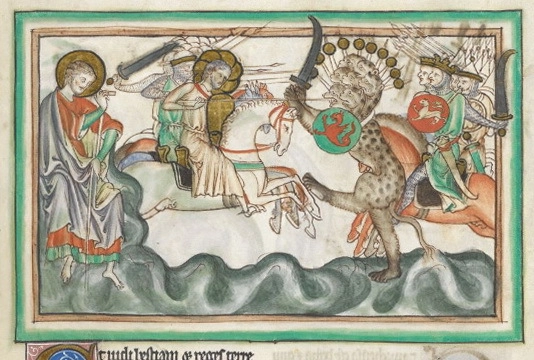 Et uidi bestiam et reges terre